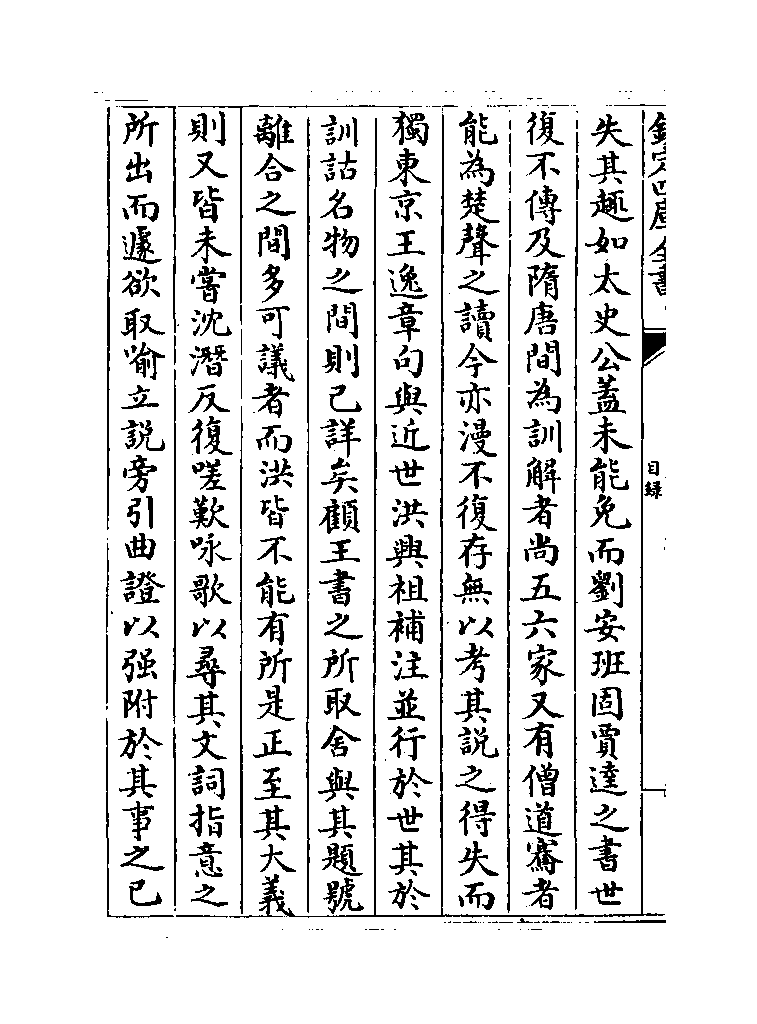 欽定四庫全書
目録
失其趣如太史公蓋未能免而劉安班固賈逵之書世
復不傳及隋唐間為訓解者尚五六家又有僧道騫者
能為楚聲之讀今亦漫不復存無以考其說之得失而
獨東京王逸章句與近世洪興祖補注並行於世其於
訓詁名物之間則已詳矣顧王書之所取舍與其題號
離合之間多可議者而洪皆不能有所是正至其大義
則又皆未嘗沈潛反復嗟歎咏歌以尋其文詞指意之
所出而遽欲取喻立說旁引曲證以强附於其事之已